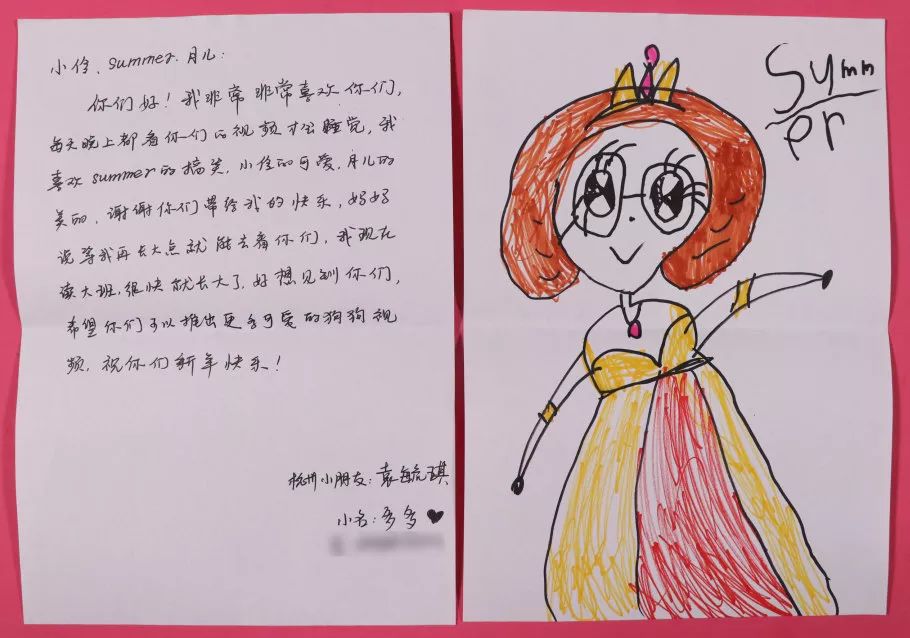 小伶、summer、月儿：
你们好！我非常非常喜欢你们，
每天晚上都看你们的视频才会睡觉，我
喜欢summer的搞笑，小伶的可爱，月儿的
美丽，谢谢你们带给我的快乐，妈妈
说等我再长大点就能去看你们，我现在
读大班，很快就长大了，好想见到你们，
希望你们可以推出更多可爱的狗狗视
频，祝你们新年快乐！
杭州小朋友：袁毓琪
小名：多多
Summ
er